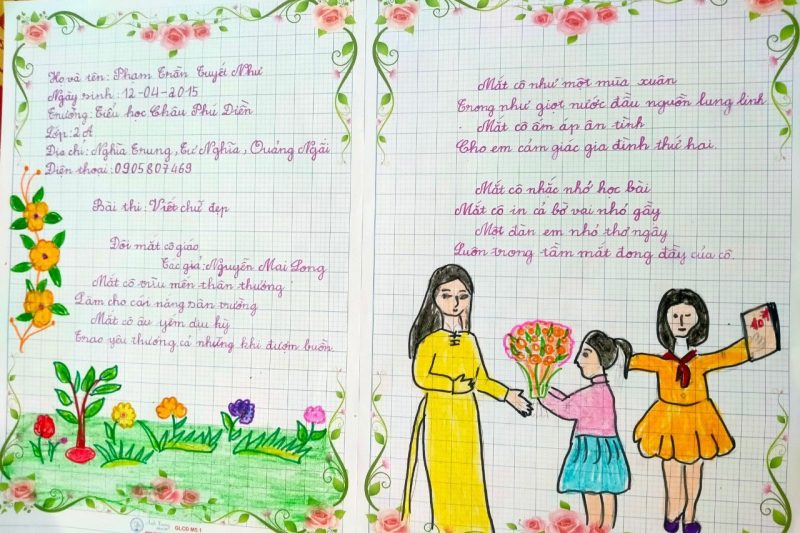 Họ và tên: Phạm Trần Tuyết Như
Ngày sinh: 12-04-2015
Trường: Tiểu học Châu Phú Diền
Lớp: 2A
Địa chỉ: Nghĩa Trung, Tư Nghĩa, Quảng Ngãi
Điện thoại: 0905807469
Bài thi: Viết chữ đẹp
Đôi mắt cô giáo
Tác giả: Nguyễn Mai Long
Mắt cô trìu mến thân thương
Làm cho cái nắng sân trường
Mắt cô âu yếm dịu kỳ
Trao yêu thương cả những khi đượm buồn.
Mắt cô như một mùa xuân
Trong như giọt nước đầu nguồn lung linh
Mắt cô ấm áp ân tình
Cho em cảm giác gia đình thứ hai.
Mắt cô nhắc nhở học bài
Mắt cô in cả bờ vai nhỏ gầy
Một đàn em nhỏ thơ ngây
Luôn trong tầm mắt đong đầy của cô.
10đ
GLCG M5.1